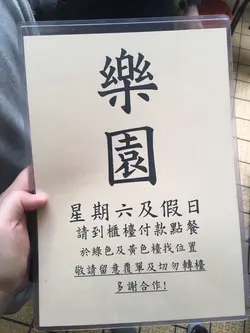 樂
園
星期六及假日
請到櫃檯付款點餐
於綠色及黃色檯找位置
敬請留意覆單及切勿轉檯
多謝合作!